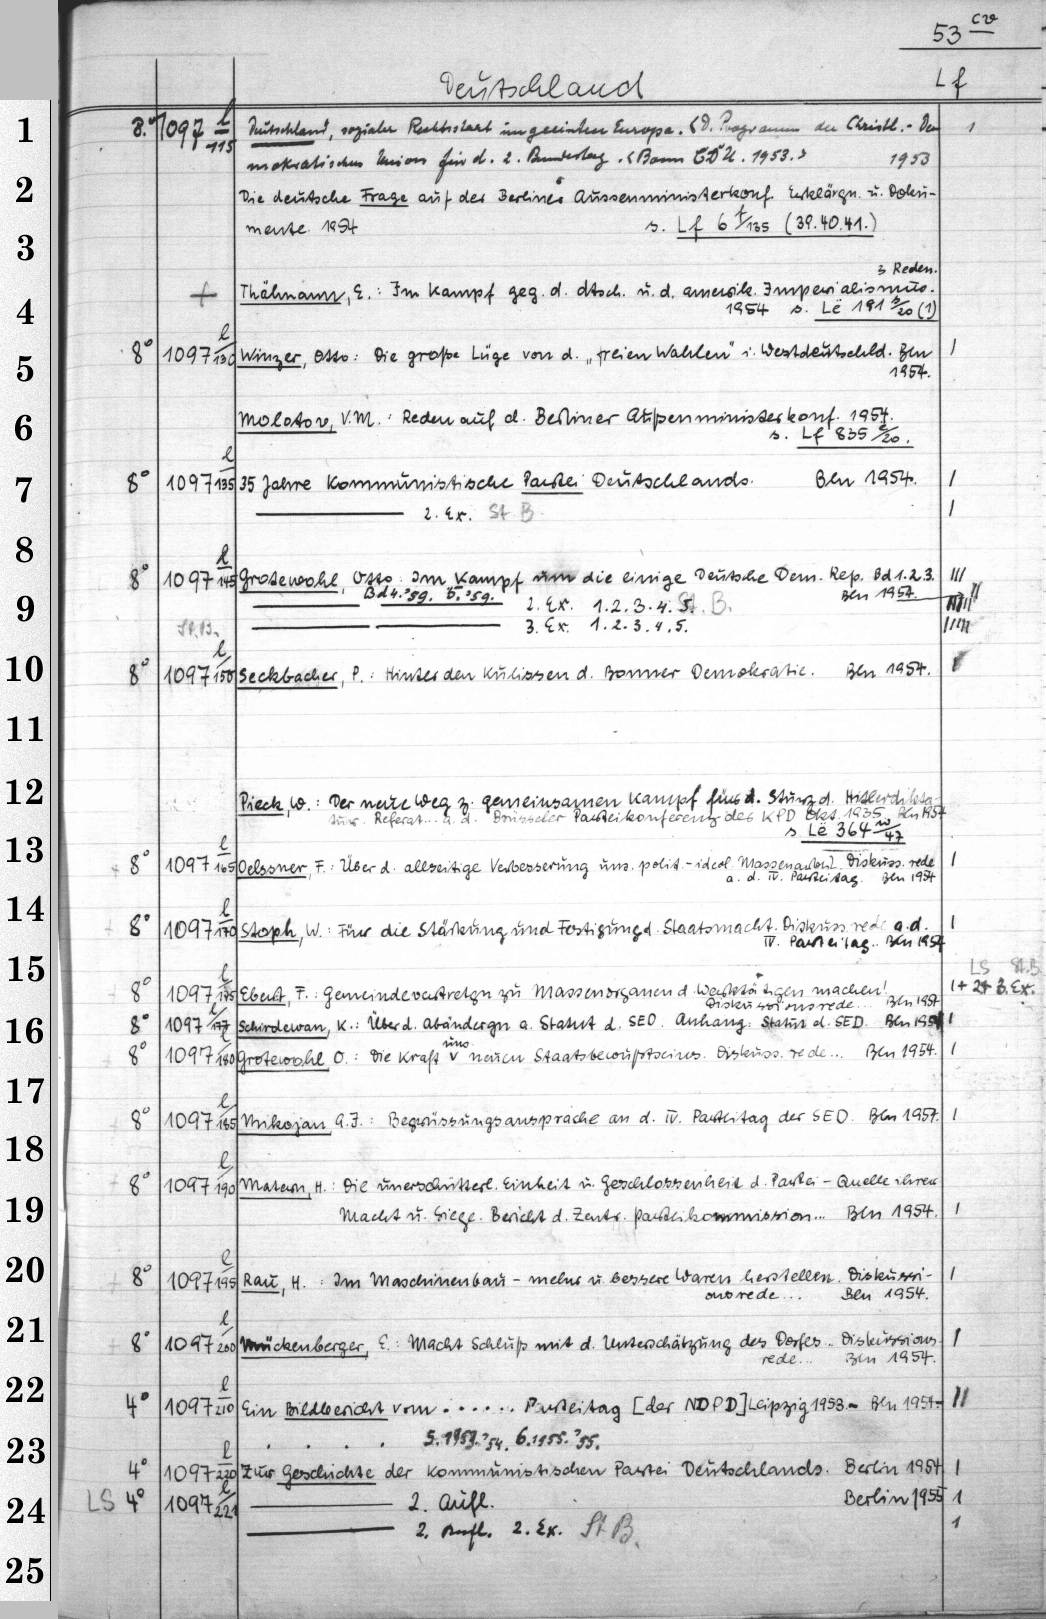 53 cv
Deutschland Lf
1
8° 1097 l/115 Deutschland, sozialer Rechtsstaat im geeinten Europa. <D. Programm der Christl.-De- 1
mokratischen Union für d. 2. Bundestag. <Bonn CDU. 1953.> 1953
2
Die deutsche Frage auf der Berliner Aussenministerkonf. Erklärgn. u. Doku-
3
mente. 1954 s. Lf 6 f/135 (39.40.41.)
3 Reden.
4
+ Thälmann, E.: Im Kampf geg. d. dtsch. u. d. amerik. Imperialismus.
1954 s. Lë 191 s/20 (1)
5
8° 1097 l/130 Winzer, Otto: Die große Lüge von d. „freien Wahlen" i. Westdeutschld. Bln I
1954.
6
Molotov, V.M.: Reden auf d. Berliner Außenministerkonf. 1954.
s. Lf 835 c/20.
7
8° 1097 l/135 35 Jahre Kommunistische Partei Deutschlands. Bln 1954. I
2. Ex. St.B. I
8
8° 1097 l/145 Grotewohl, Otto: Im Kampf um die einige Deutsche Dem. Rep. Bd 1.2.3. III
Bd 4.'59. 5.'59. Bln 1954.
9
2. Ex. 1.2.3.4.5. St.B.
St.B. 3. Ex. 1.2.3.4.5. IIIII
10
8° 1097 l/150 Seckbacher, P.: Hinter den Kulissen d. Bonner Demokratie. Bln 1954. I
11
12
Pieck, W.: Der neue Weg z. gemeinsamen Kampf für d. Sturz d. Hitlerdikta-
tur. Referat... a. d. Brüsseler Parteikonferenz des KPD Okt. 1935. Bln 1954
s. Lë 364 w/47
13
8° 1097 l/165 Oelssner, F.: Über d. allseitige Verbesserung uns. polit.-ideol. Massenarbeit. Diskuss. rede I
a. d. IV. Parteitag. Bln 1954
14
8° 1097 l/170 Stoph, W.: Für die Stärkung und Festigung d. Staatsmacht. Diskuss. rede a.d. I
IV. Parteitag.. Bln 1954
15
LS St.B.
8° 1097 l/175 Ebert, F.: Gemeindevertretgn zu Massenorganen d. Werktätigen machen! I + 2+ 3. Ex.
Diskussionsrede... Bln 1954
16
8° 1097 l/177 Schirdewan, K.: Über d. Abändergn a. Statut d. SED. Anhang: Statut d. SED. Bln 1954 I
8° 1097 l/180 Grotewohl O.: Die Kraft uns. neuen Staatsbewußtseins. Diskuss. rede... Bln 1954. I
17
8° 1097 l/185 Mikojan, A.I.: Begrüssungsansprache an d. IV. Parteitag der SED. Bln 1954. I
18
8° 1097 l/190 Matern, H.: Die unerschütterl. Einheit u. Geschlossenheit d. Partei – Quelle ihrer
19
Macht u. Siege. Bericht d. Zentr. Parteikommission... Bln 1954. I
20
8° 1097 l/195 Rau, H.: Im Maschinenbau – mehr u. bessere Waren herstellen. Diskussi- I
onsrede... Bln 1954.
21
8° 1097 l/200 Mückenberger, E.: Macht Schluß mit d. Unterschätzung des Dorfes.. Diskussions- I
rede... Bln 1954.
22
4° 1097 l/210 Ein Bildbericht vom ...... Parteitag [der NDPD] Leipzig 1953.– Bln 1954– II
. . . . 5.1953.'54. 6.1955.'55.
23
4° 1097 l/220 Zur Geschichte der Kommunistischen Partei Deutschlands. Berlin 1954 I
24
LS 4° 1097 l/221 2. Aufl. Berlin 1955 1
2. Aufl. 2. Ex. St.B. 1
25